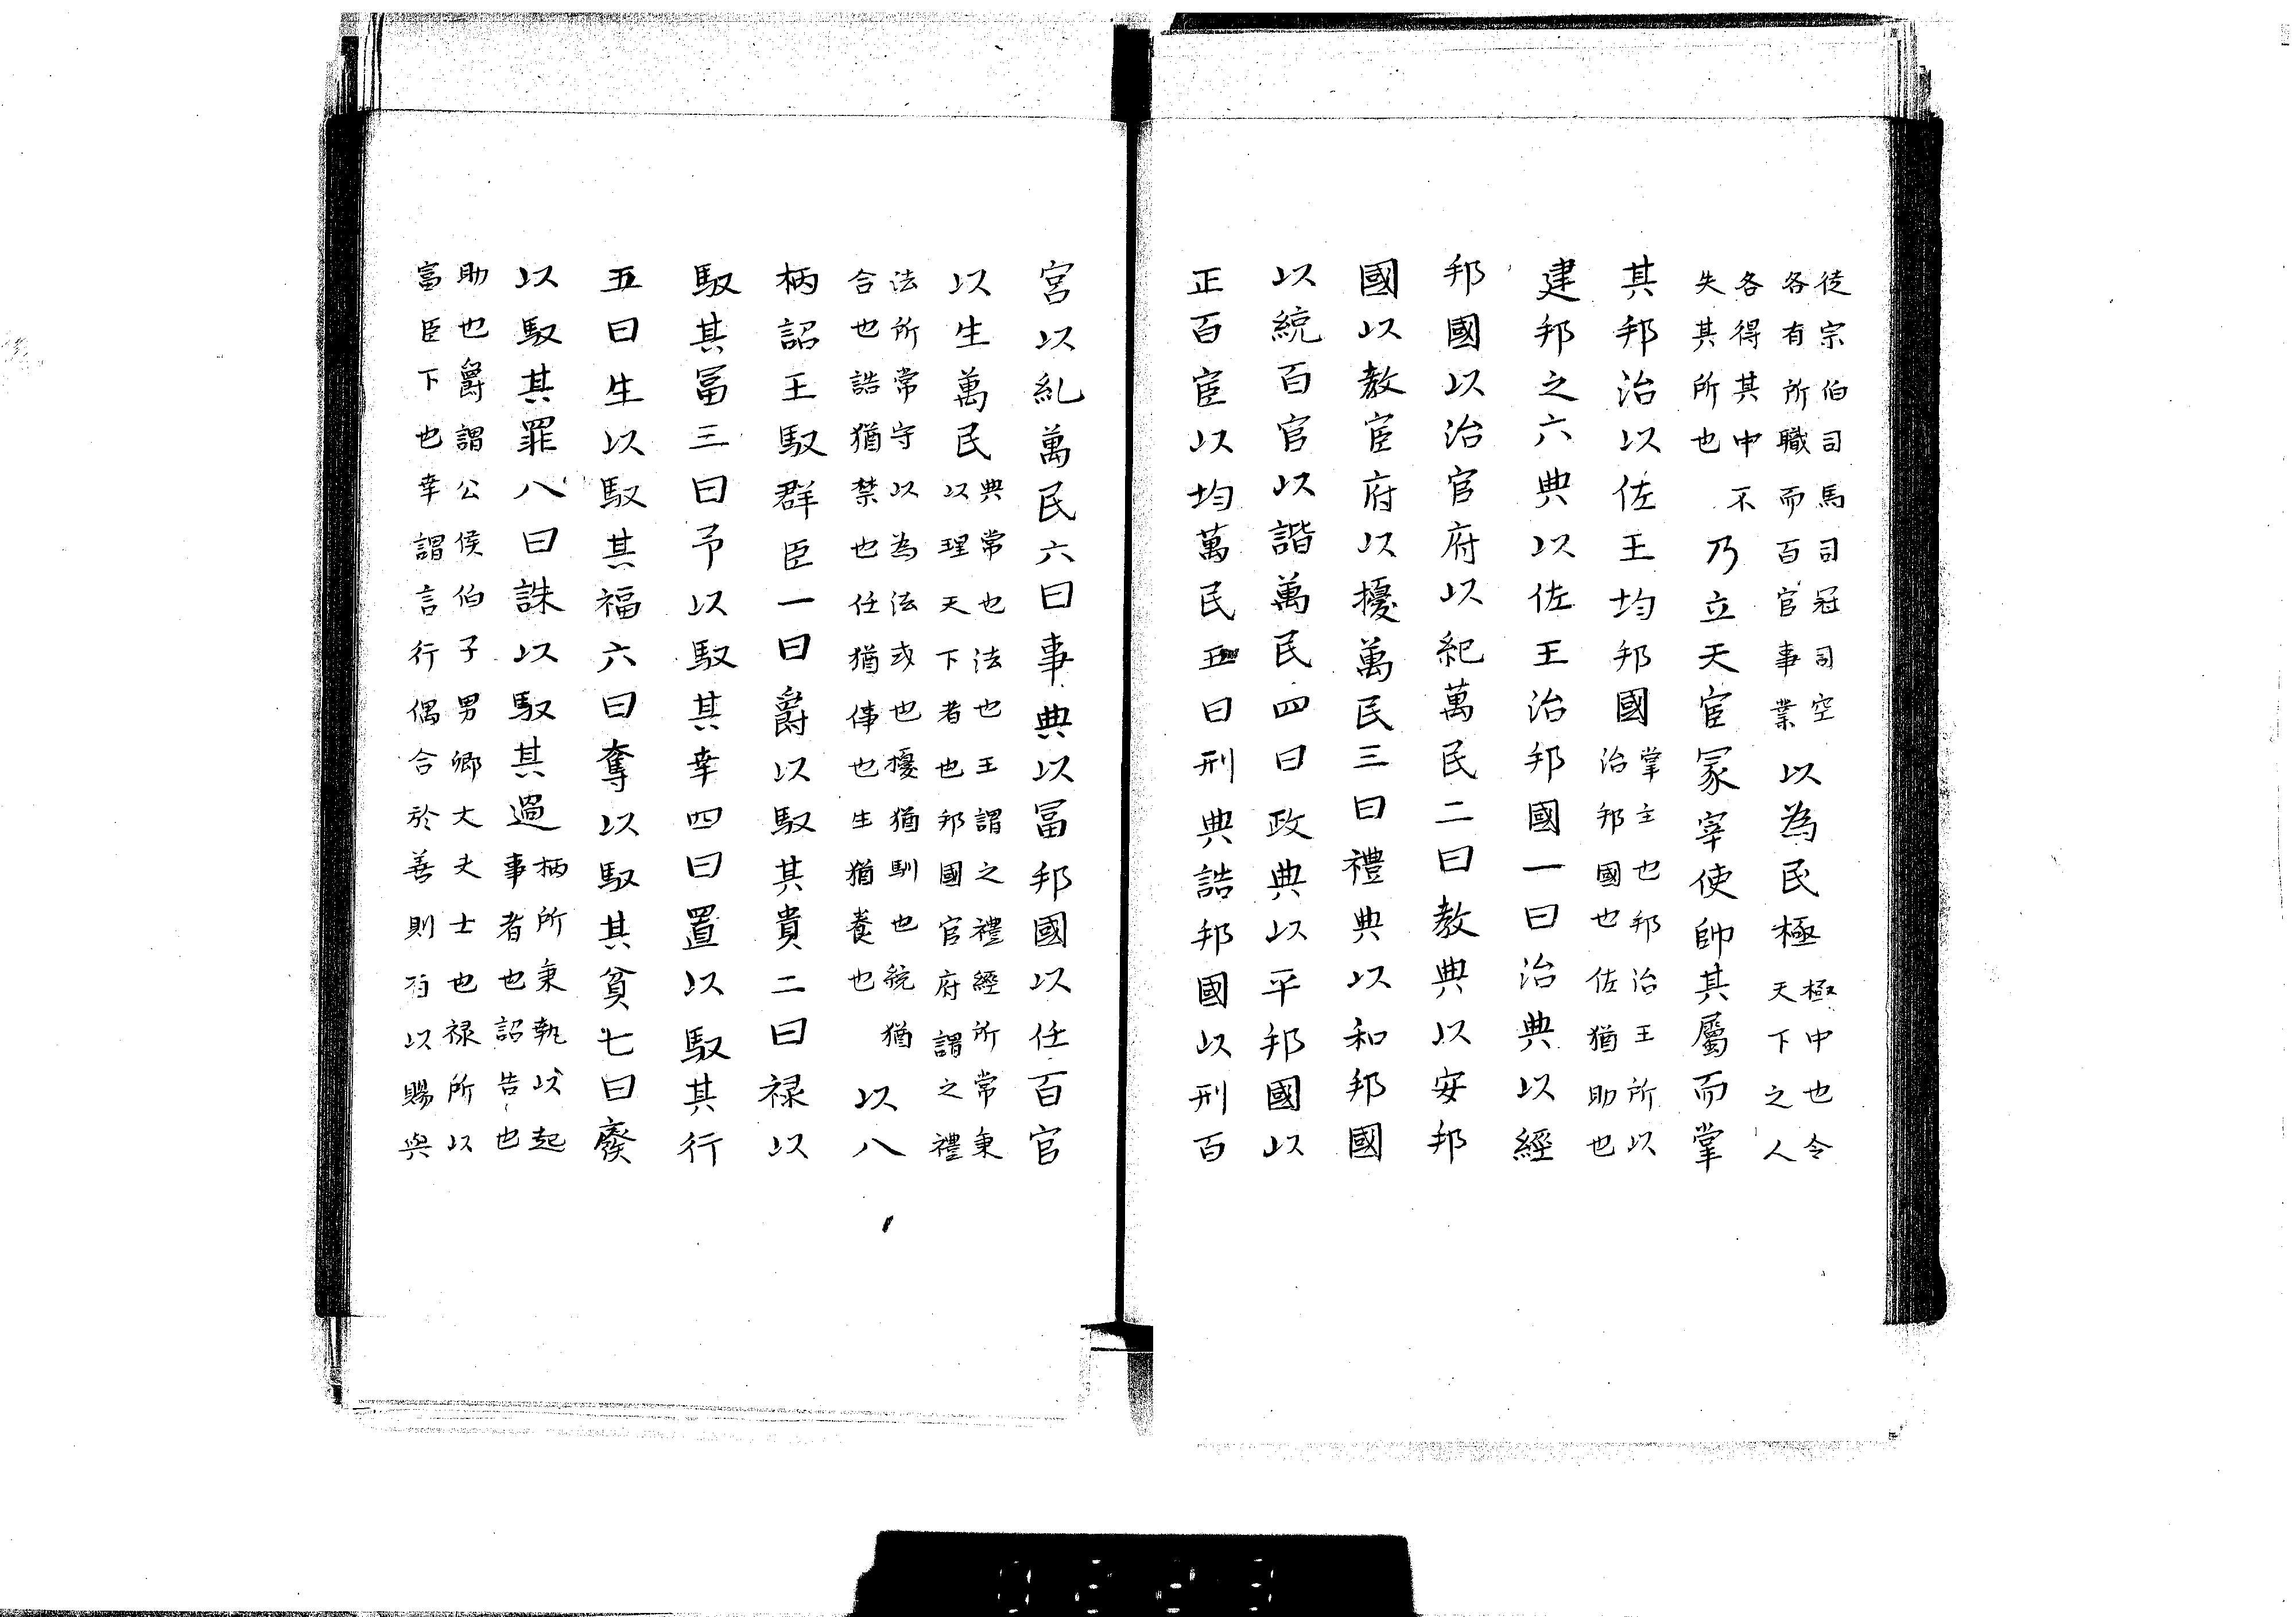 徒宗伯司馬司冠司空
各有所職而百官事業
以為民極
極中也令
天下之人
各得其中不
失其所也
乃立天官冢宰使帥其屬而掌
其邦治以佐王均邦國
掌主也邦治王所以
治邦國也佐猶助也
建邦之六典以佐王治邦國一曰治典以經
邦國以治官府以紀萬民二曰教典以安邦
國以教官府以擾萬民三曰禮典以和邦國
以統百官以諧萬民四曰政典以平邦國以
正百官以均萬民五曰刑典詰邦國以刑百
宮以糺萬民六曰事典以冨邦國以任百官
以生萬民
典常也法也王謂之禮經所常秉
以理天下者也邦國官府謂之禮
法所常守以為法或也擾猶馴也統猶
合也詰猶禁也任猶倳也生猶養也
以八
柄詔王馭群臣一曰爵以馭其貴二曰禄以
馭其冨三曰予以馭其幸四曰置以馭其行
五曰生以馭其福六曰奪以馭其貧七曰廢
以馭其罪八曰誅以馭其過
柄所秉執以起
事者也詔告也
助也爵謂公侯伯子男卿大夫士也禄所以
富臣下也幸謂言行偶合於善則有以賜與